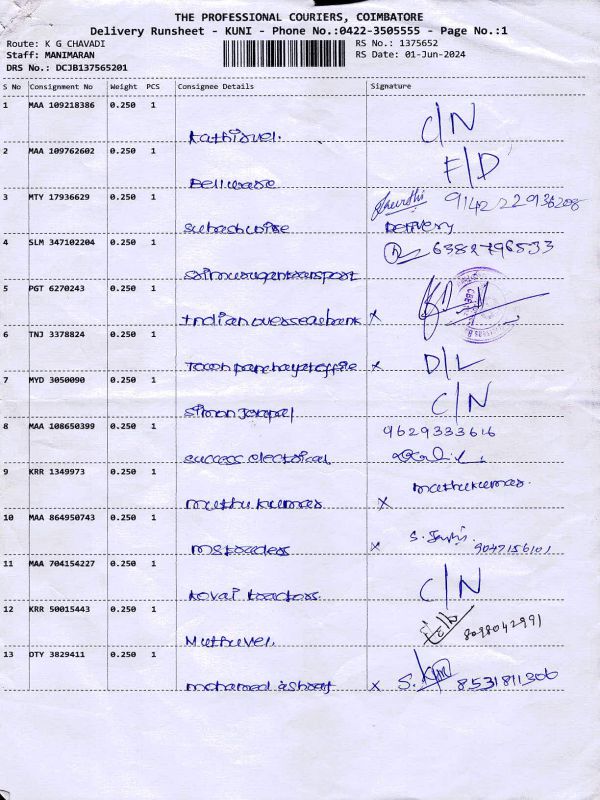 THE PROFESSIONAL COURIERS, COIMBATORE
Delivery Runsheet - KUNI - Phone No.:0422-3505555 - Page No.:1
Route: K G CHAVADI RS No.: 1375652
Staff: MANIMARAN RS Date: 01-Jun-2024
DRS No.: DCJB137565201
S No Consignment No Weight PCS Consignee Details Signature
1 MAA 109218386 0.250 1
Kathirvel. C/N
2 MAA 109762602 0.250 1
F/D
3 MTY 17936629 914222936208
Delivery
4 SLM 347102204 0.250 1 6382796533
Srimurugan transport
5 PGT 6270243 0.250 1
Indian overseas bank x
6 TNJ 3378824 0.250 1
Town panchayat offile x D/L
7 MYD 3050090 0.250 1 C/N
Simon
8 MAA 108650399 0.250 1 9629333616
success electrical
9 KRR 1349973 0.250 1 muthukumar.
muthu kumar x
10 MAA 864950743 0.250 1 S.
ms traders x 9047156101
11 MAA 704154227 0.250 1
Kovai tractors. C/N
12 KRR 50015443 0.250 1 8098042991
Muthuvel.
13 DTY 3829411 0.250 1
mohamed ashraf x S. 8531811306